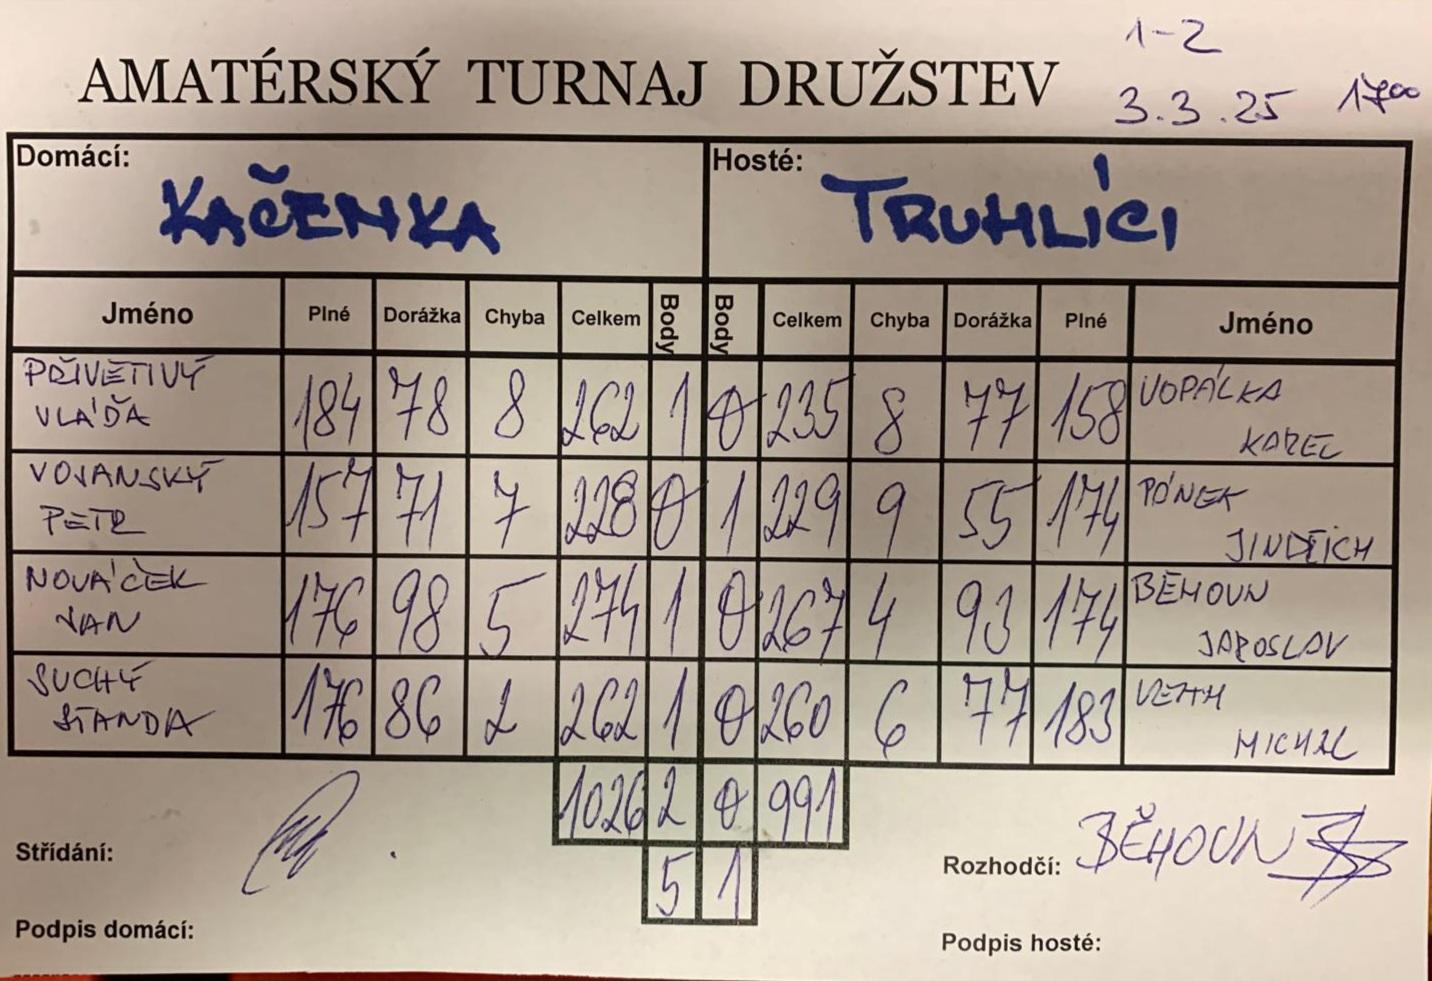 1-2
AMATÉRSKÝ TURNAJ DRUŽSTEV
3.3.25 17⁰⁰
Domácí: Hosté:
KAČENKA TRUHLÍCI
Jméno Plné Dorážka Chyba Celkem Body Body Celkem Chyba Dorážka Plné Jméno
PŘIVĚTIVÝ VOPÁLKA
VLÁĎA 184 78 8 262 1 0 235 8 77 158 KAREL
VOJANSKÝ PÓNEK
PETR 157 71 7 228 0 1 229 9 55 174 JINDŘICH
NOVÁČEK BĚHOUN
JAN 176 98 5 274 1 0 267 4 93 174 JAROSLAV
SUCHÝ
STANDA 176 86 2 262 1 0 260 6 77 183 MICHAL
1026 2 0 991
Střídání: Rozhodčí: BĚHOUN
5 1
Podpis domácí: Podpis hosté: